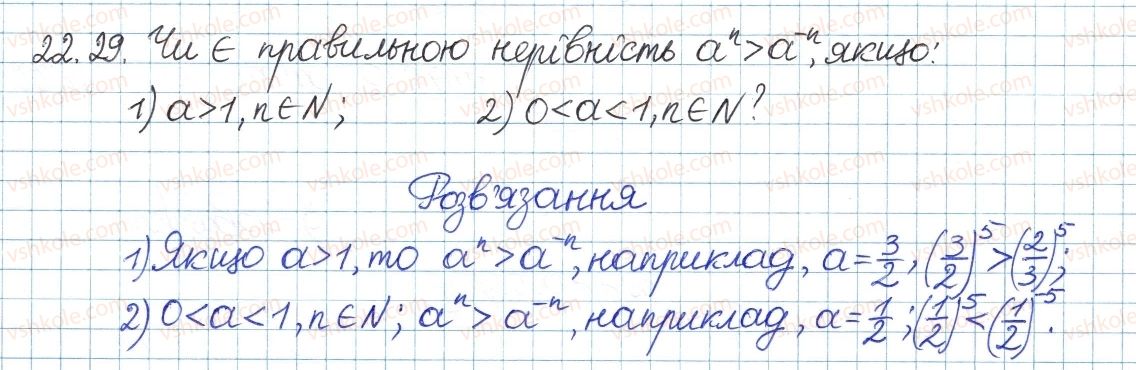 22.29. Чи є правильною нерівність aⁿ>a⁻ⁿ, якщо:
1) a>1, n∈N; 2) 0<a<1, n∈N?
Розв'язання
1) Якщо a>1, то aⁿ>a⁻ⁿ, наприклад, a=3/2; (3/2)⁵>(2/3)⁵;
2) 0<a<1, n∈N; aⁿ>a⁻ⁿ, наприклад, a=1/2; (1/2)⁵<(1/2)⁻⁵.